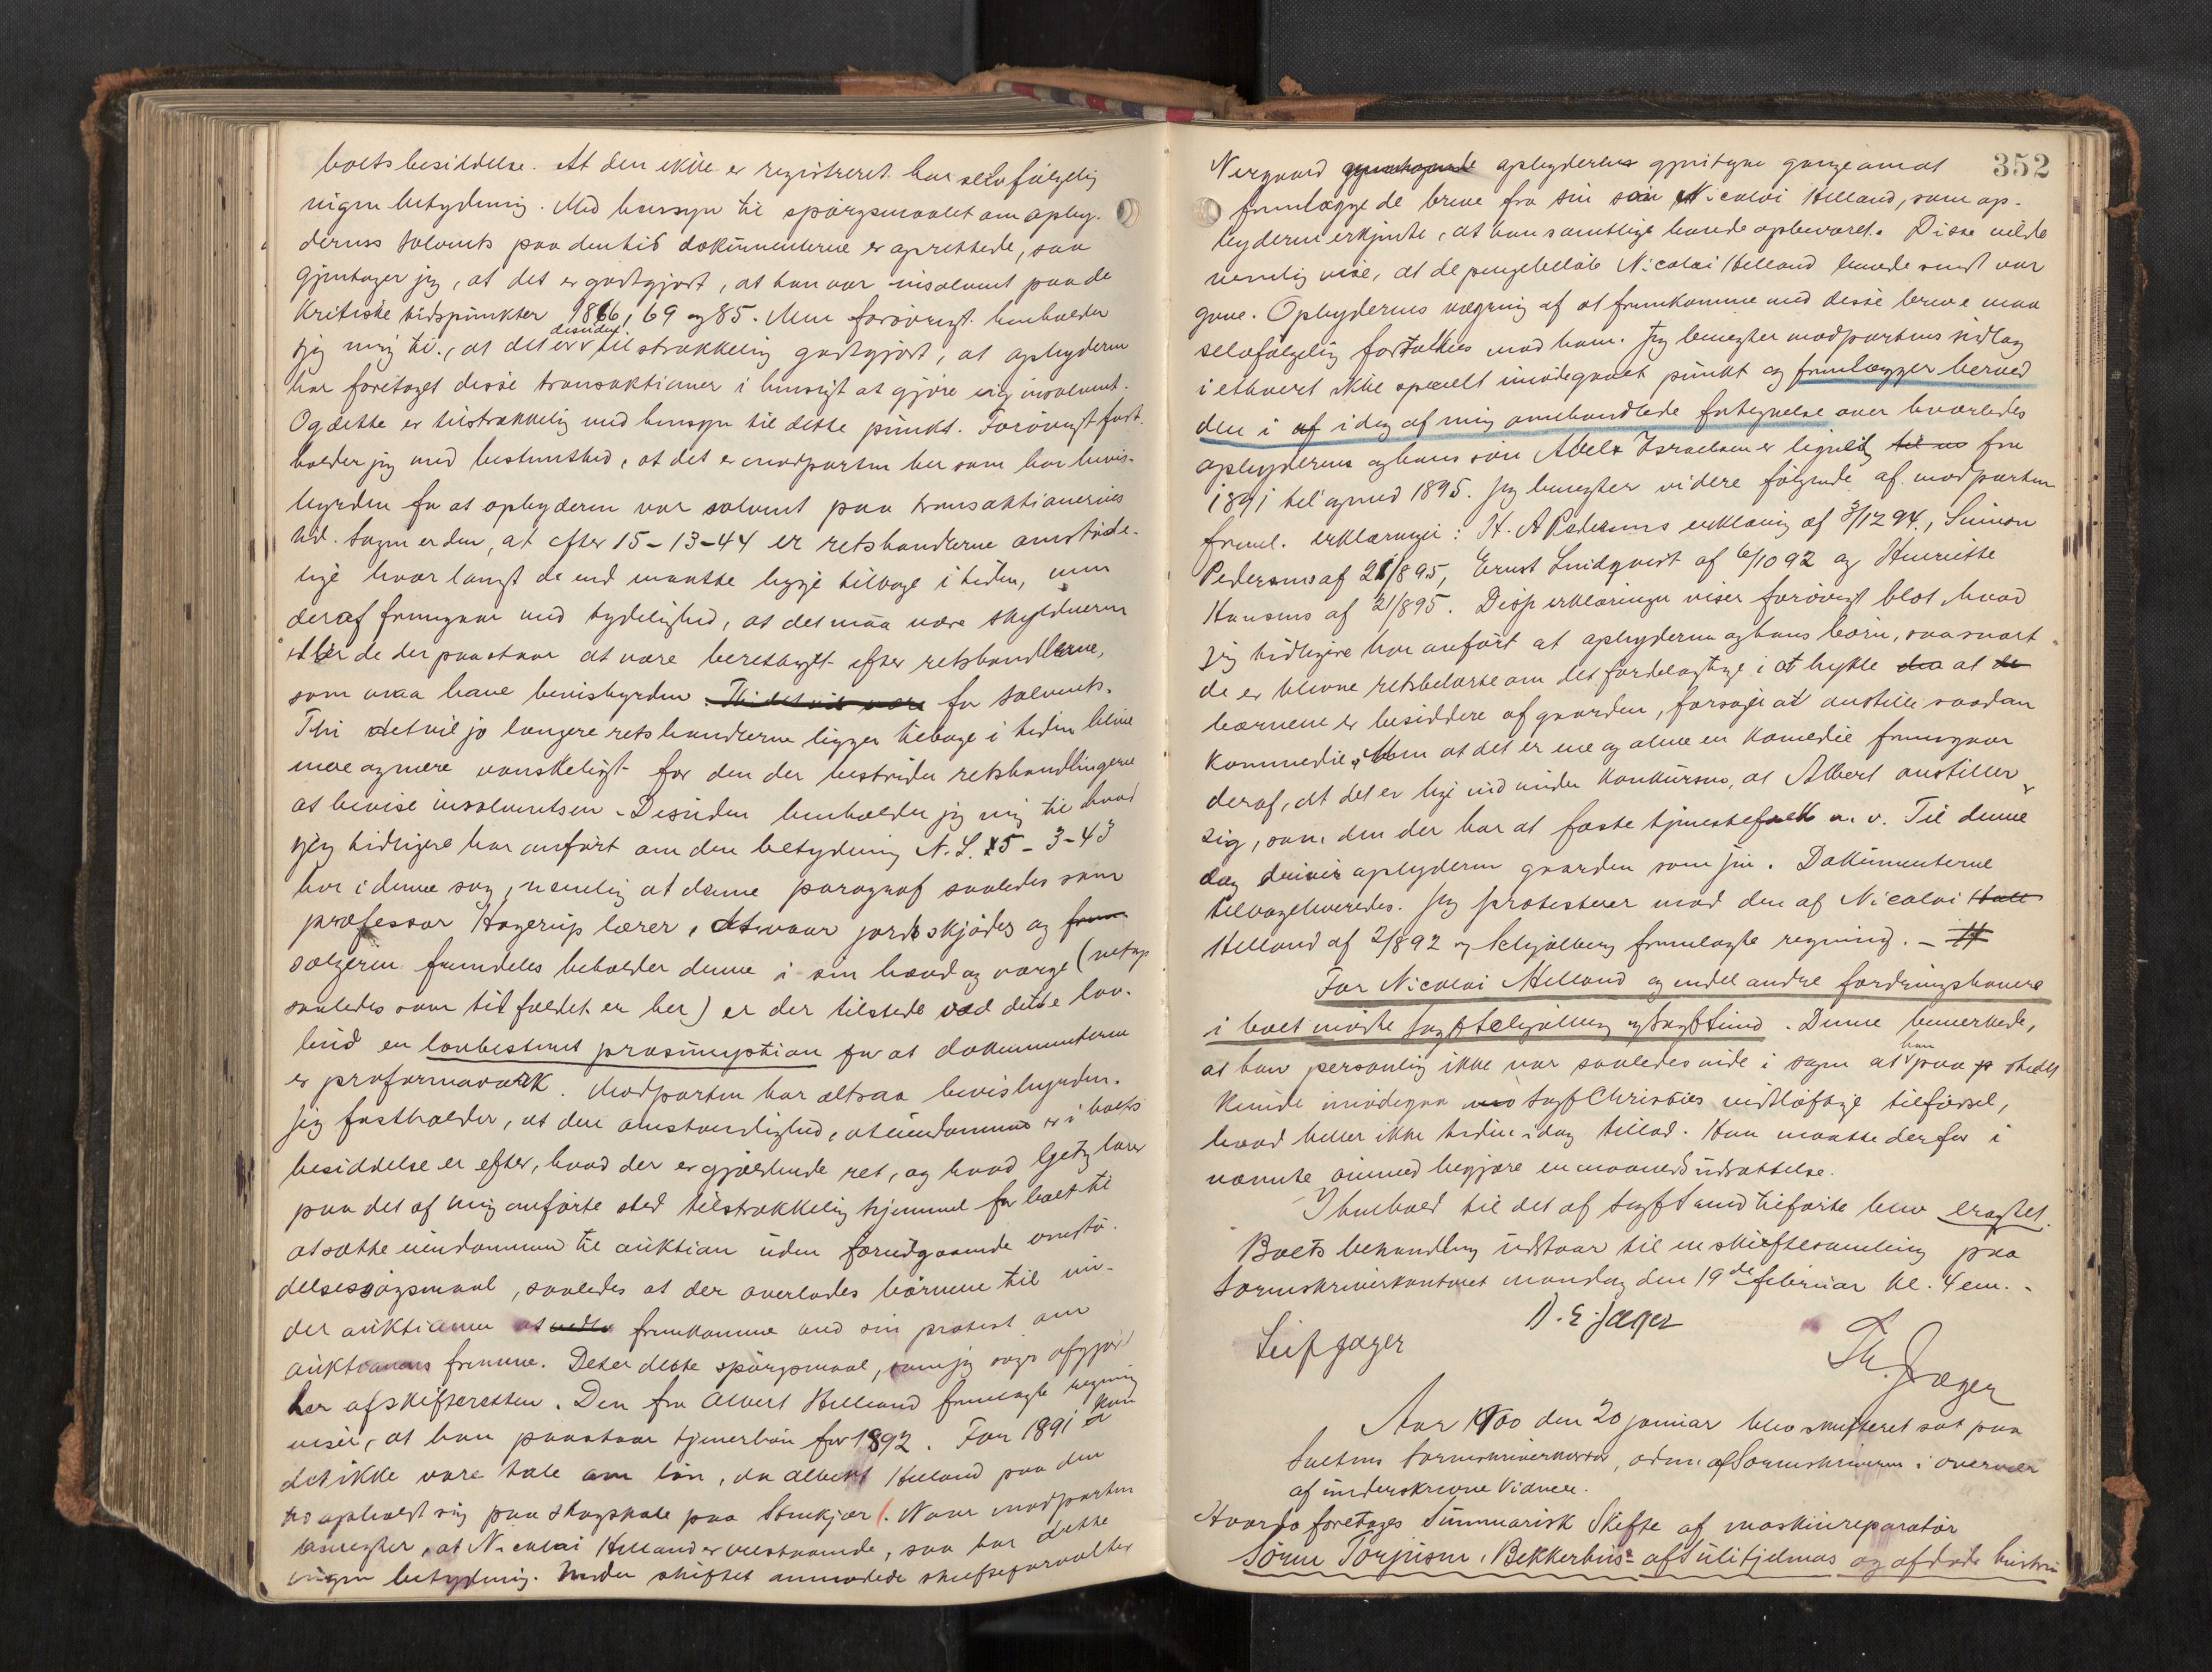 boets besiddelse. At den ikke er registreret har selvfølgelig
ingen betydning. Med hensyn til spørgsmaalet om ophy-
derens solvents paa den tid dokumenterne er oprettede, saa
gjentager jeg, at det er godtgjort, at han var insolvent paa de
kritiske tidspunkter 1866, 69 og 85. Men forøvrigt henholder
jeg mig til, at det er desuden tilstrækkelig godtgjort, at ophyderen
har foretaget disse transaktioner i hensigt at gjøre sig insolvent.
Og dette er tilstrækkelig med hensyn til dette punkt. Forøvrigt fast-
holder jeg med bestemthed, at det er modparten her som har bevis-
byrden for at ophyderen var solvent paa transaktionernes
tid. Sagen er den, at efter 15-13-44 er retshandlerne omstøde-
lige hvor langt de end maatte ligge tilbage i tiden, men
deraf fremgaar med tydelighed, at det maa være skyldneren
eller de der paastaar at være berettiget efter retshandlerne,
som maa have bevisbyrden Thi det vil være for solvents.
Thi det vil jo længere retshandlerne ligger tilbage i tiden blive
mere og mere vanskeligt for den der bestrider retshandlingerne
at bevise insolventsen. Desuden henholder jeg mig til hvad
jeg tidligere har anført om den betydning N. L. 5-3-43
har i denne sag, nemlig at denne paragraf saaledes som
professor Hagerup lærer, at naar jord skjødes og frem
sælgeren fremdeles beholder denne i sin haand og værge (netop
saaledes som tilfældet er her) er der tilstede ved dette lov-
bud en lovbestemt præsumption for at dokumenterne
er proformaværk. Modparten har altsaa bevisbyrden.
Jeg fastholder, at den omstændighed, at eiendommen er i boets
besiddelse er efter, hvad der er gjældende ret, og hvad Getz lærer
paa det af mig anførte sted tilstrækkelig hjemmel for boet til
at sætte eiendommen til auktion uden forudgaaende omstø-
delsessøgsmaal, saaledes at der overlades børnene til un-
der auktionen at nedlæ fremkomme med sin protest om
auktionens fremme. Det er dette spørgsmaal, som jeg søger afgjort
her af skifteretten. Den fra Albert Helland fremlagte regning
viser, at han paastaar tjenerløn for 1892. For 1891 kan
det ikke være tale om løn, da Albert Helland paa den
tid opholdt sig paa skogskole paa Stenkjær. Naar modparten
benegter, at Nicolai Helland er velstaaende, saa har dette
ingen betydning. Under skiftet anmodede skifteforvalter
352
Nergaard gjentagende ophyderen gjentagne gange om at
fremlægge de breve fra sin søn Nicolai Helland, som op-
hyderen erkjendte, at han samtlige havde opbevaret. Disse vilde
nemlig vise, at de pengebeløb Nicolai Helland havde sendt var
gave. Ophyderens vægring af at fremkomme med disse breve maa
selvfølgelig fortolkes mod ham. Jeg benegter modpartens indlæg
i ethvert ikke specielt imødegaaet punkt og fremlægger herved
den i af idag af mig omhandlede fortegnelse over hvorledes
ophyderens og hans søn Abels Israelsen er lignet til os fra
1891 til og med 1895. Jeg benegter videre følgende af modparten
freml. erklæringer: H. A Pedersens erklæring af 3/12 94, Simon
Pedersens af 21/8 95, Ernst Lindqvist af 6/10 92 og Henriette
Hansens af 21/8 95. Disse erklæringer viser forøvrigt blot, hvad
jeg tidligere har anført at ophyderen og hans børn, saasnart
de er blevne retsbelærte om det fordelagtige i at hykle at
børnene er besiddere af gaarden, forsøger at anstille saadan
kommedie. Men at det er ene og alene en komedie fremgaar
deraf, at det er lige ind under konkursen, at Albert anstiller
sig, som den der har at fæste tjenestefolk o. s. v. Til denne
dag driver ophyderen gaarden som sin. Dokumenterne
tilbageleveredes. Jeg protesterer mod den af Nicolai Hell
Helland af 2/8 92 og Schjølberg fremlagte regning. -
For Nicolai Helland og endel andre fordringshavere
i boet mødte sagf Schjølberg v/ sagf Sund. Denne bemerkede,
at han personlig ikke var saaledes inde i sagen at han paa stedet
kunde imødegaa sagf Christies vidtløftige tilførsel,
hvad heller ikke tiden idag tillod. Han maatte derfor i
nævnte øiemed begjære en maaneds udsættelse.
I henhold til det af sagf Sund tilførte blev eragtet.
Boets behandling udstaar til en skiftesamling paa
Sorenskriverkontoret mandag den 19de februar kl. 4 em. -
D. E. Jæger
Leif Jæger
Th. Jæger
Aar 1900 den 20 januar blev skifteret sat paa
Saltens Sorenskriverkontor, adm. af Sorenskriveren i overvær
af underskrevne Vidner.
Hvorda foretoges Summarisk Skifte af maskinreparatør
Søren Torjusen, Bekkerhus af Sulitjelmas og afdøde hustru